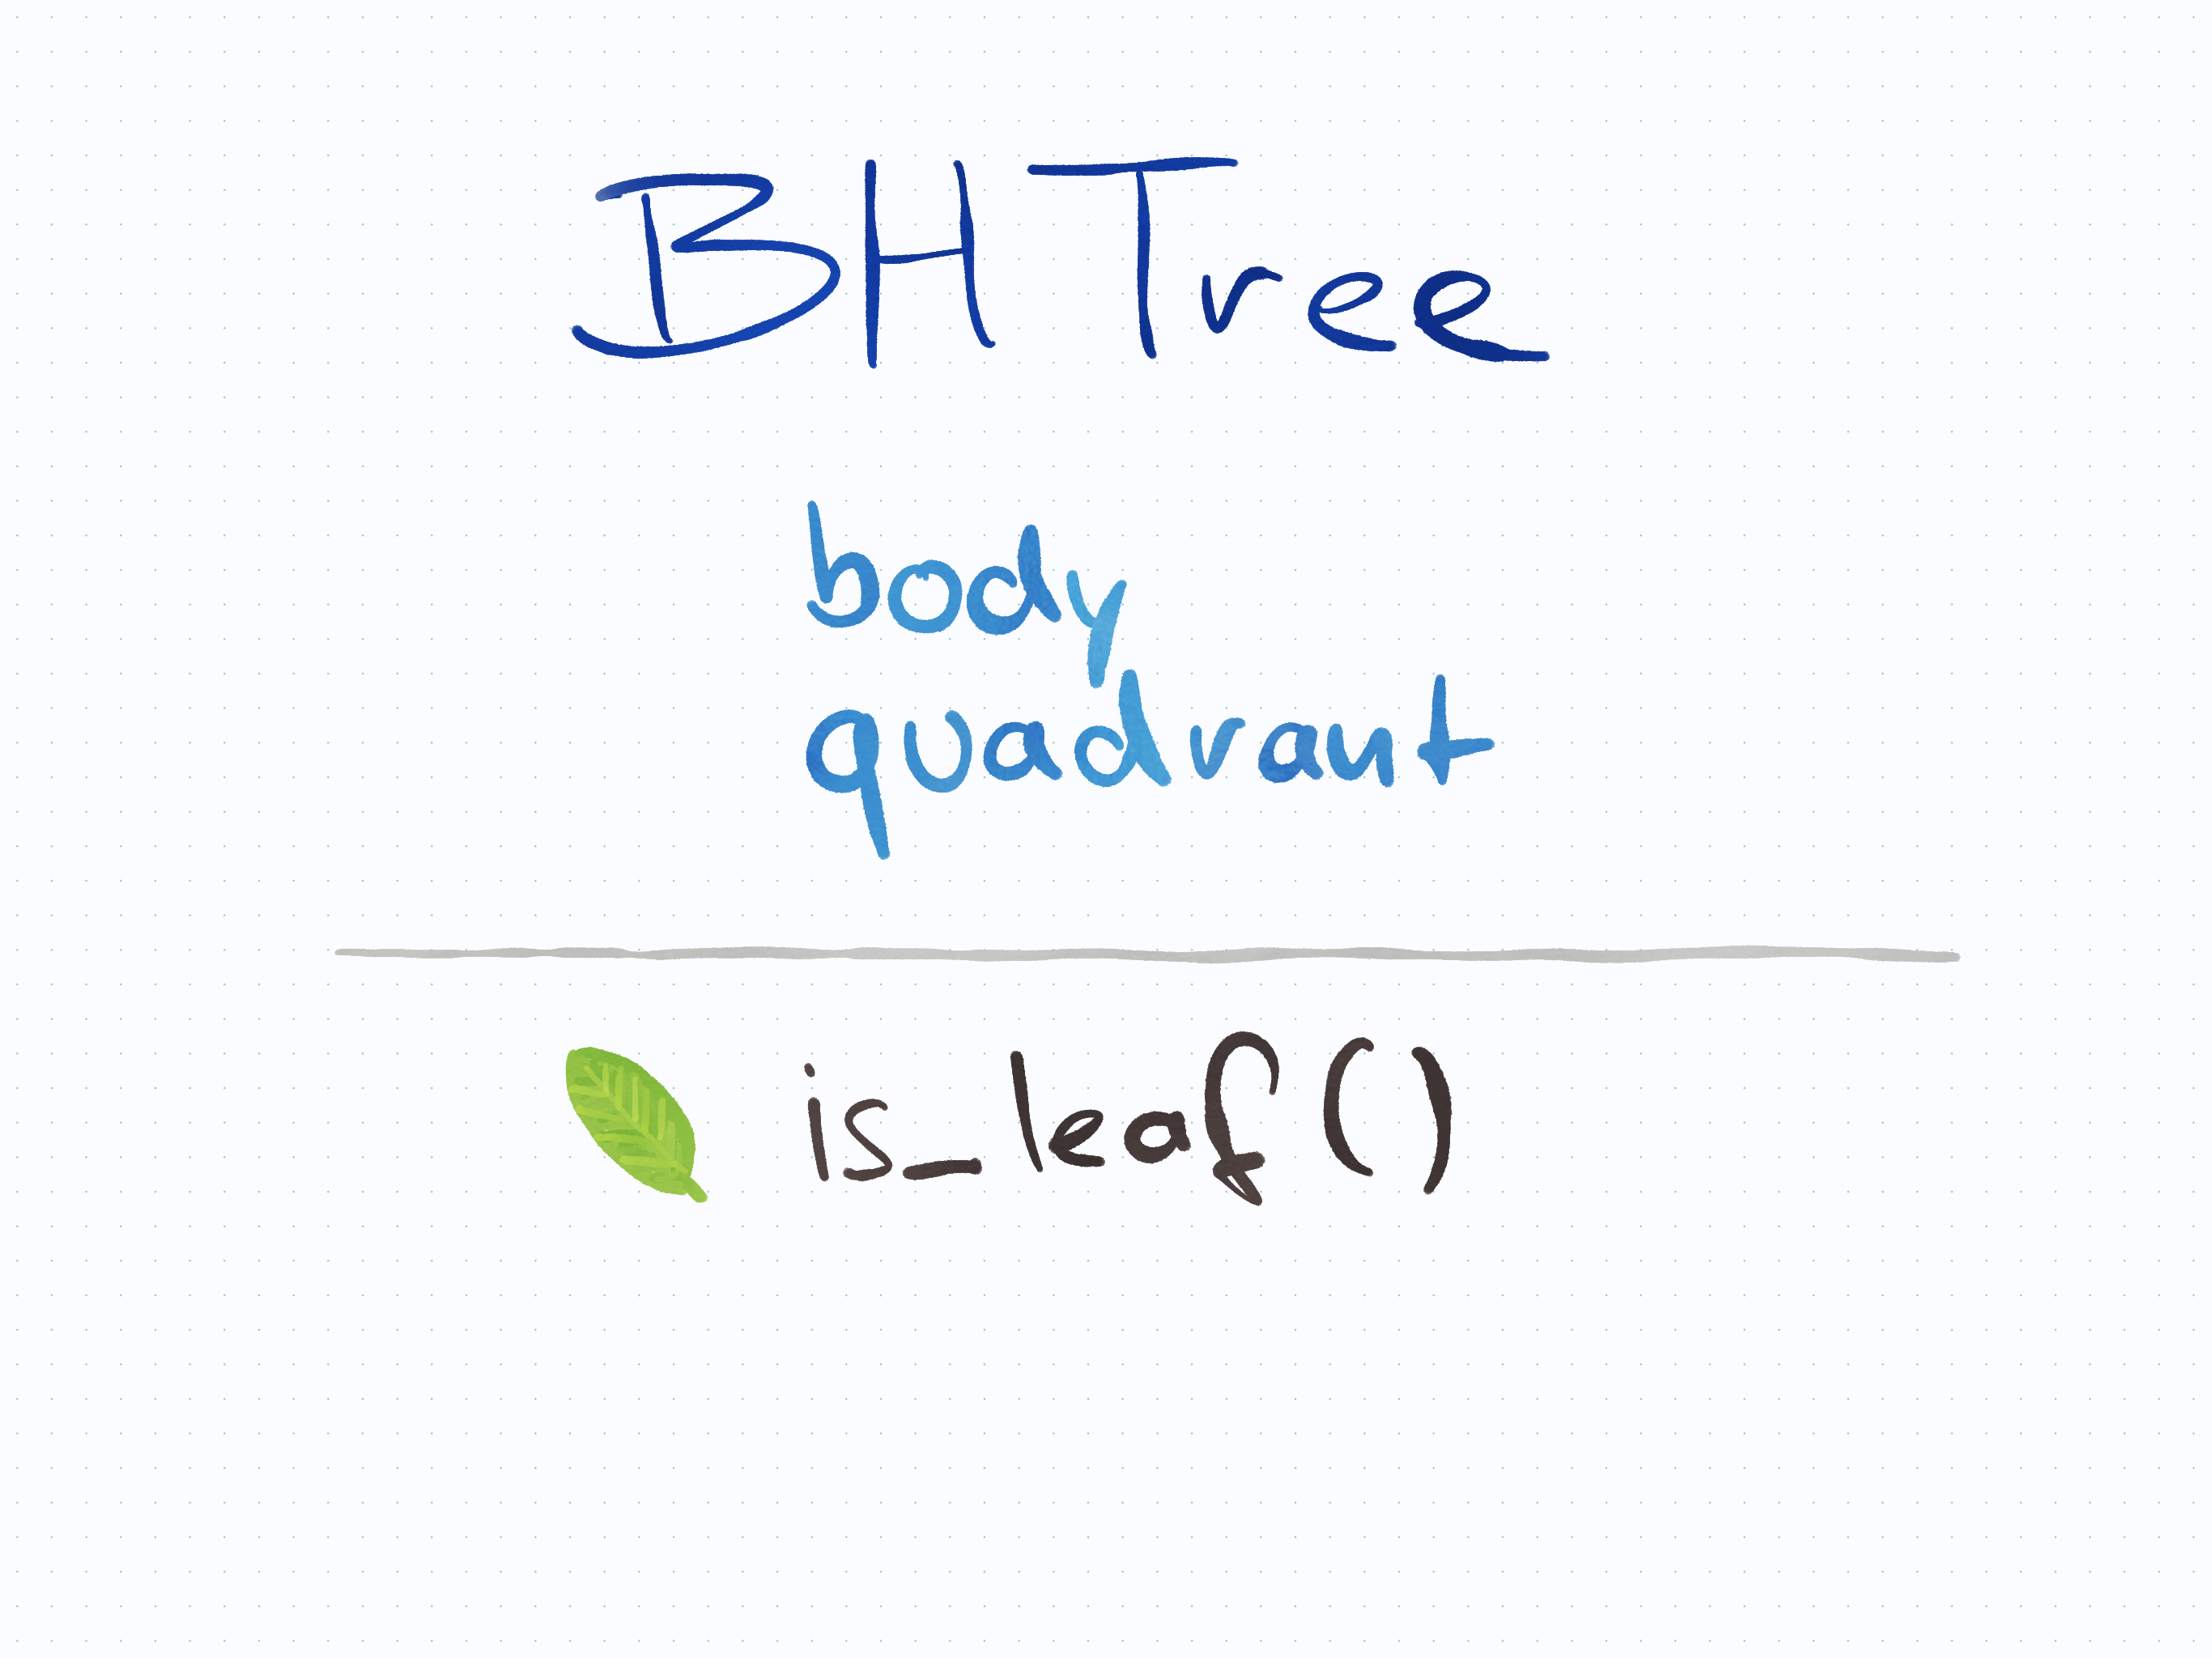 BHTree
body
quadrant
is_leaf()